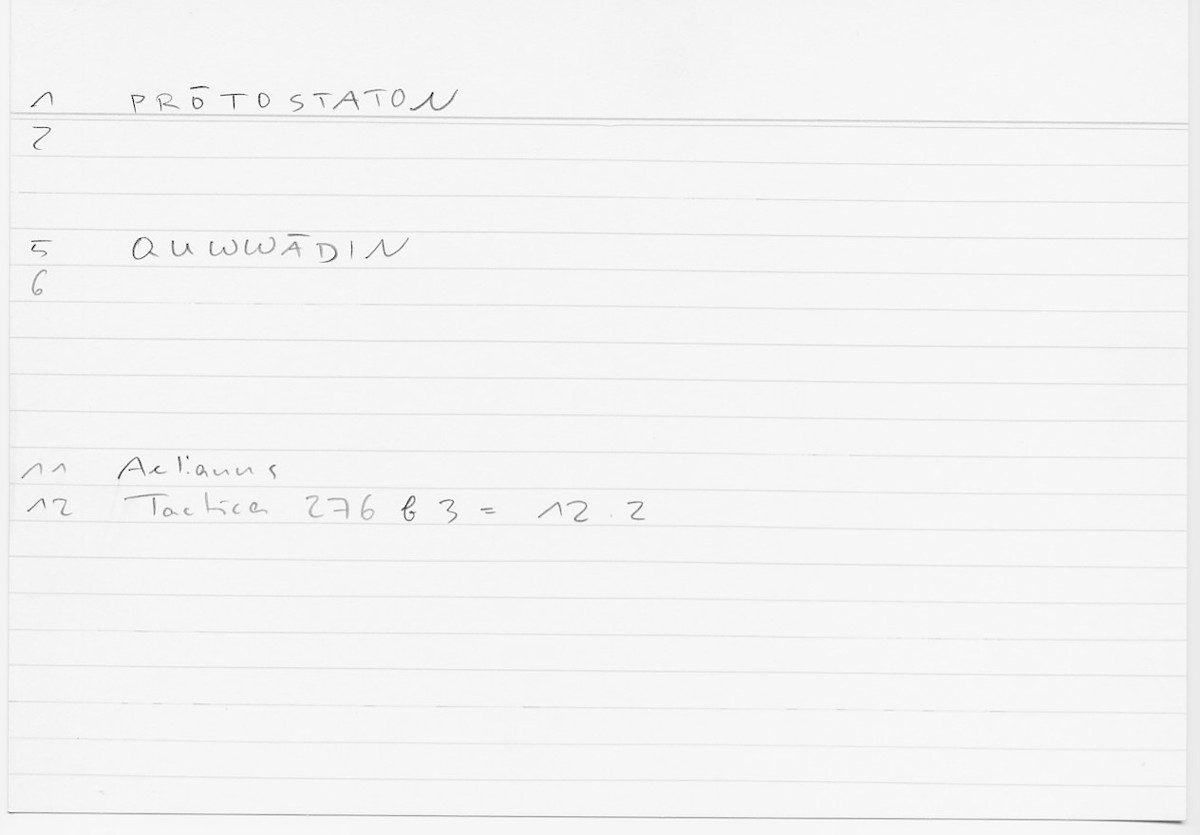 1 PRŌTOSTATON
2
5 QUWWĀDIN
6
11 Aelianus
12 Tactica 276 b 3 = 12.2